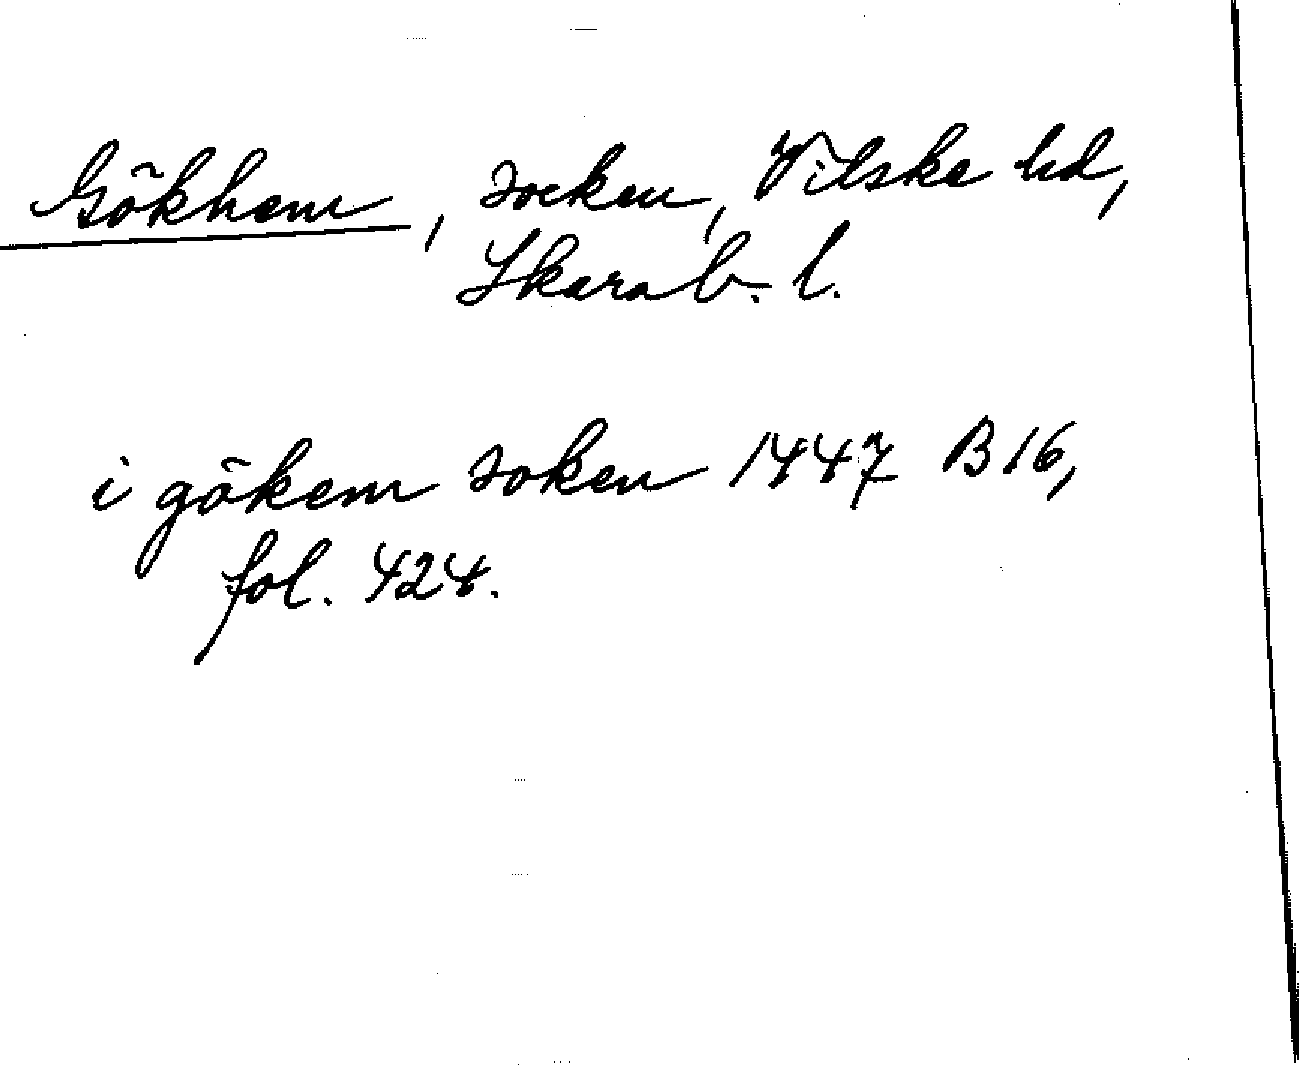 Gökhem, socken, Vilske hd,
Skarab. l.
i gökem soken 1447 B 16,
fol. 424.